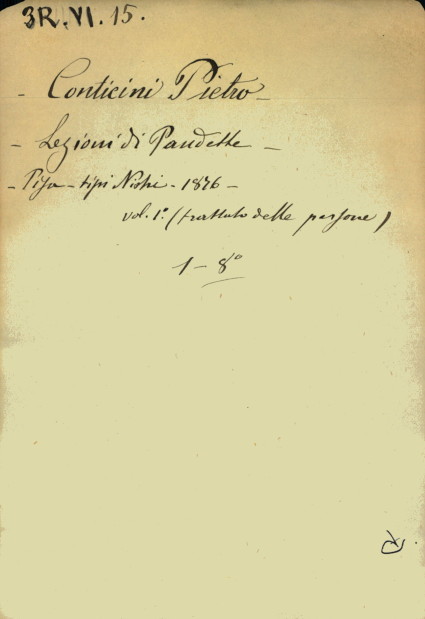 3R.VI.15.
- Conticini Pietro -
- Lezioni di Pandette -
- Pisa - tipi Nistri - 1876 -
vol. 1º. (trattato delle persone)
1 - 8º